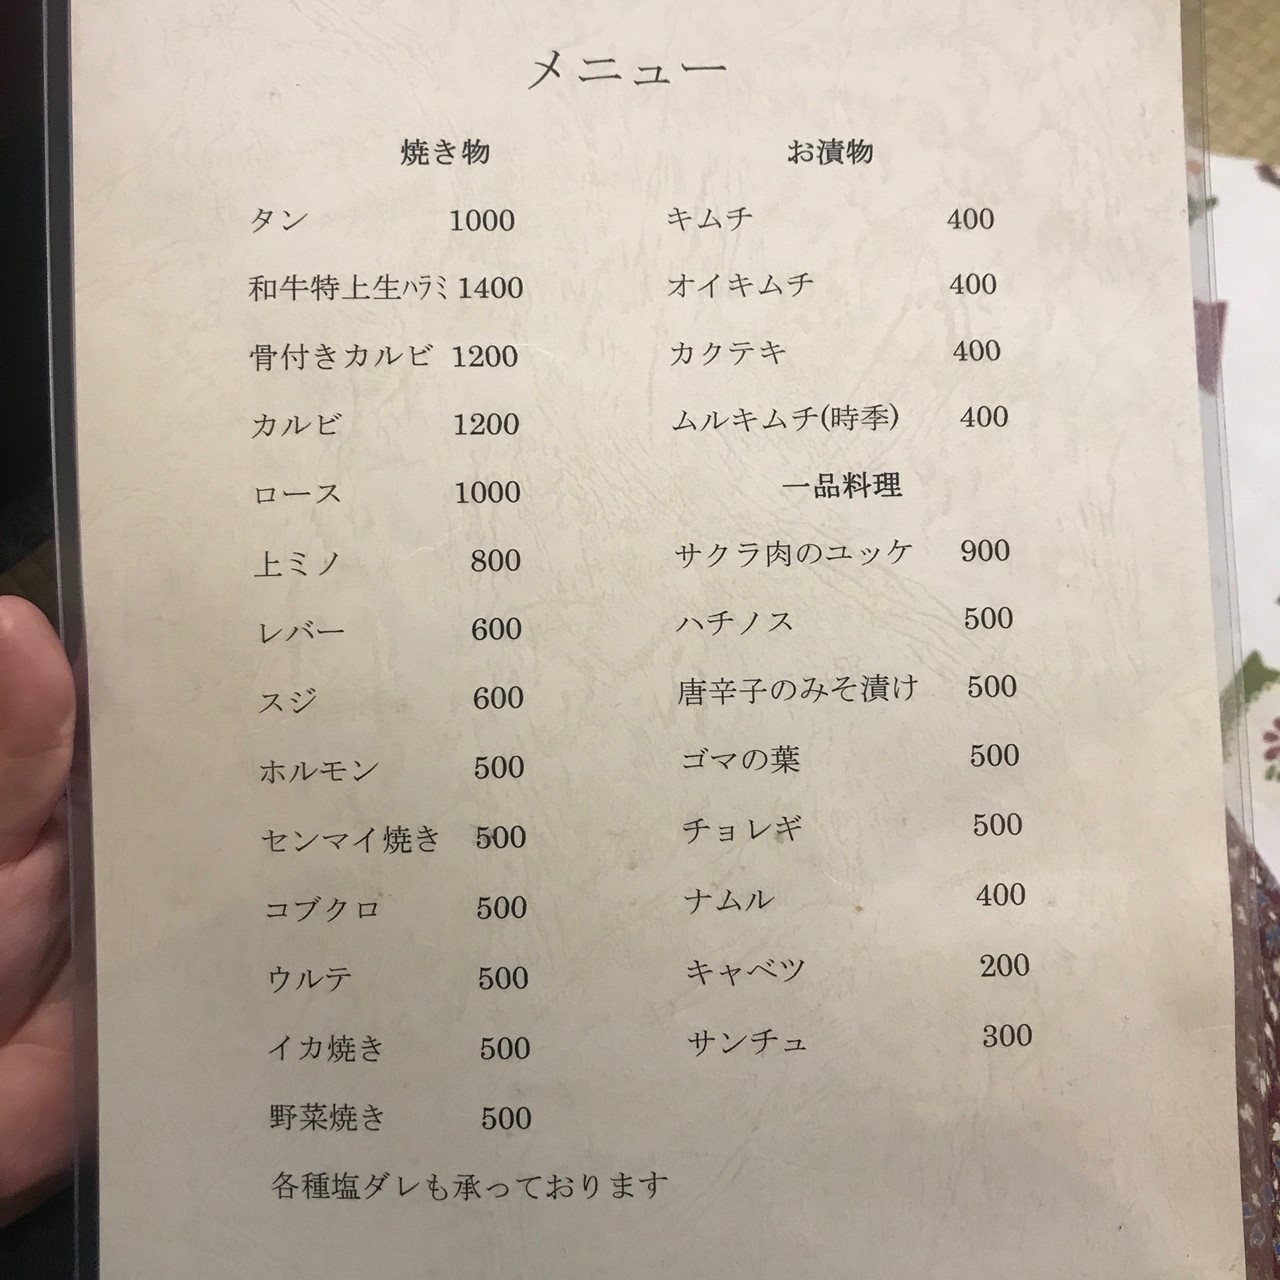 メニュー
焼き物
タン 1000
和牛特上生ﾊﾗﾐ 1400
骨付きカルビ 1200
カルビ 1200
ロース 1000
上ミノ 800
レバー 600
スジ 600
ホルモン 500
センマイ焼き 500
コブクロ 500
ウルテ 500
イカ焼き 500
野菜焼き 500
各種塩ダレも承っております
お漬物
キムチ 400
オイキムチ 400
カクテキ 400
ムルキムチ(時季) 400
一品料理
サクラ肉のユッケ 900
ハチノス 500
唐辛子のみそ漬け 500
ゴマの葉 500
チョレギ 500
ナムル 400
キャベツ 200
サンチュ 300